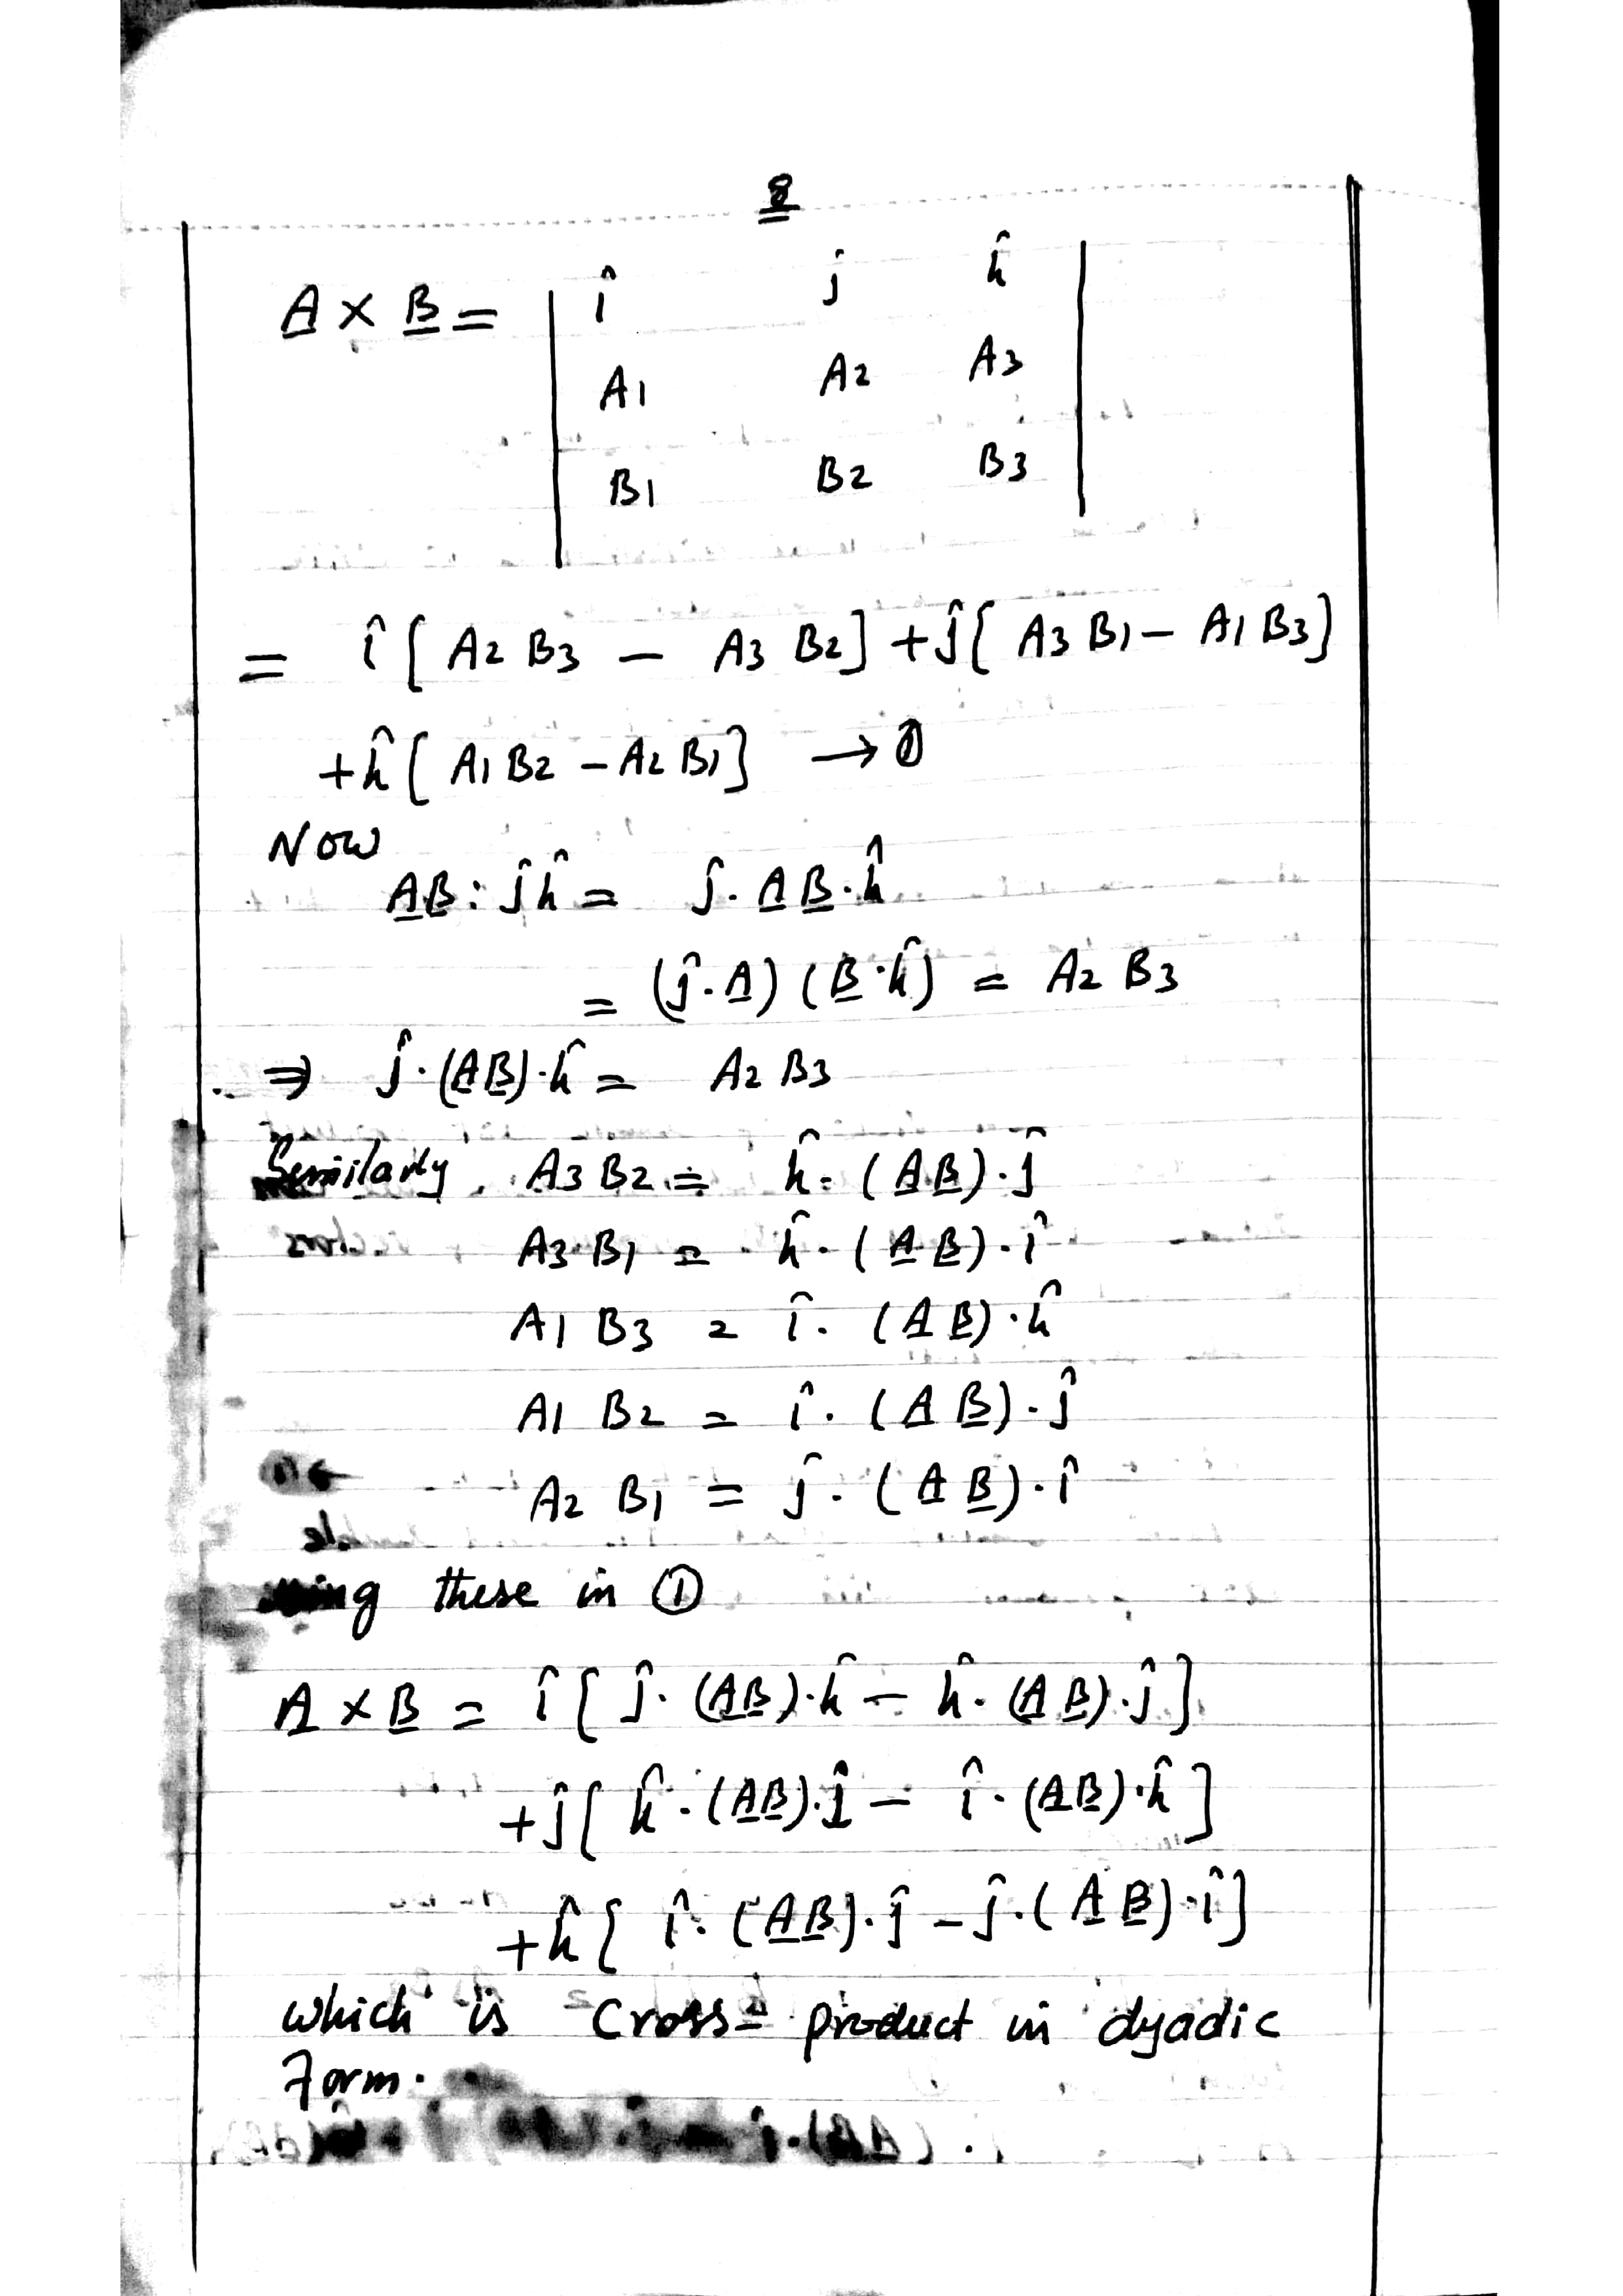 8
A × B = | î ĵ k̂ |
| A1 A2 A3 |
| B1 B2 B3 |
= î [ A2 B3 – A3 B2 ] + ĵ [ A3 B1 – A1 B3 ]
+ k̂ [ A1 B2 – A2 B1 ] → ①
Now
AB : ĵ k̂ = ĵ . AB . k̂
= (ĵ . A) (B . k̂) = A2 B3
⇒ ĵ . (AB) . k̂ = A2 B3
Similarly A3 B2 = k̂ . (AB) . ĵ
A3 B1 = k̂ . (AB) . î
A1 B3 = î . (AB) . k̂
A1 B2 = î . (AB) . ĵ
A2 B1 = ĵ . (AB) . î
these in ①
A × B = î [ ĵ . (AB) . k̂ – k̂ . (AB) . ĵ ]
+ ĵ [ k̂ . (AB) . î – î . (AB) . k̂ ]
+ k̂ [ î . (AB) . ĵ – ĵ . (AB) . î ]
which is Cross product in dyadic
Form.